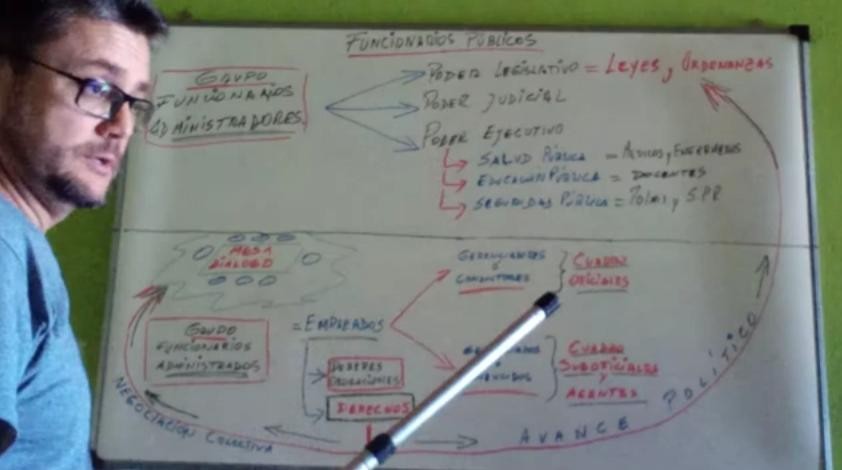 FUNCIONARIOS PÚBLICOS
GRUPO
FUNCIONARIOS
ADMINISTRADORES
PODER LEGISLATIVO = LEYES, ORDENANZAS
PODER JUDICIAL
PODER EJECUTIVO
SALUD PÚBLICA = MEDICOS, ENFERMEROS
EDUCACIÓN PÚBLICA = DOCENTES
SEGURIDAD PÚBLICA = y SPP
MESA
DIALOGO
GRUPO
FUNCIONARIOS
ADMINISTRADOS
= EMPLEADOS
DEBERES
OBLIGACIONES
DERECHOS
CONDUCTORES
CUADRO
OFICIALES
CUADRO
SUBOFICIALES
y
AGENTES
NEGOCIACIÓN COLECTIVA
AVANCE POLÍTICO